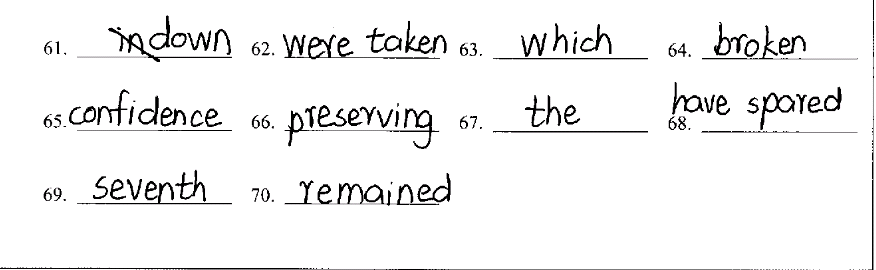 61. down 62. were taken 63. which 64. broken
65. confidence 66. preserving 67. the 68. have spared
69. seventh 70. remained